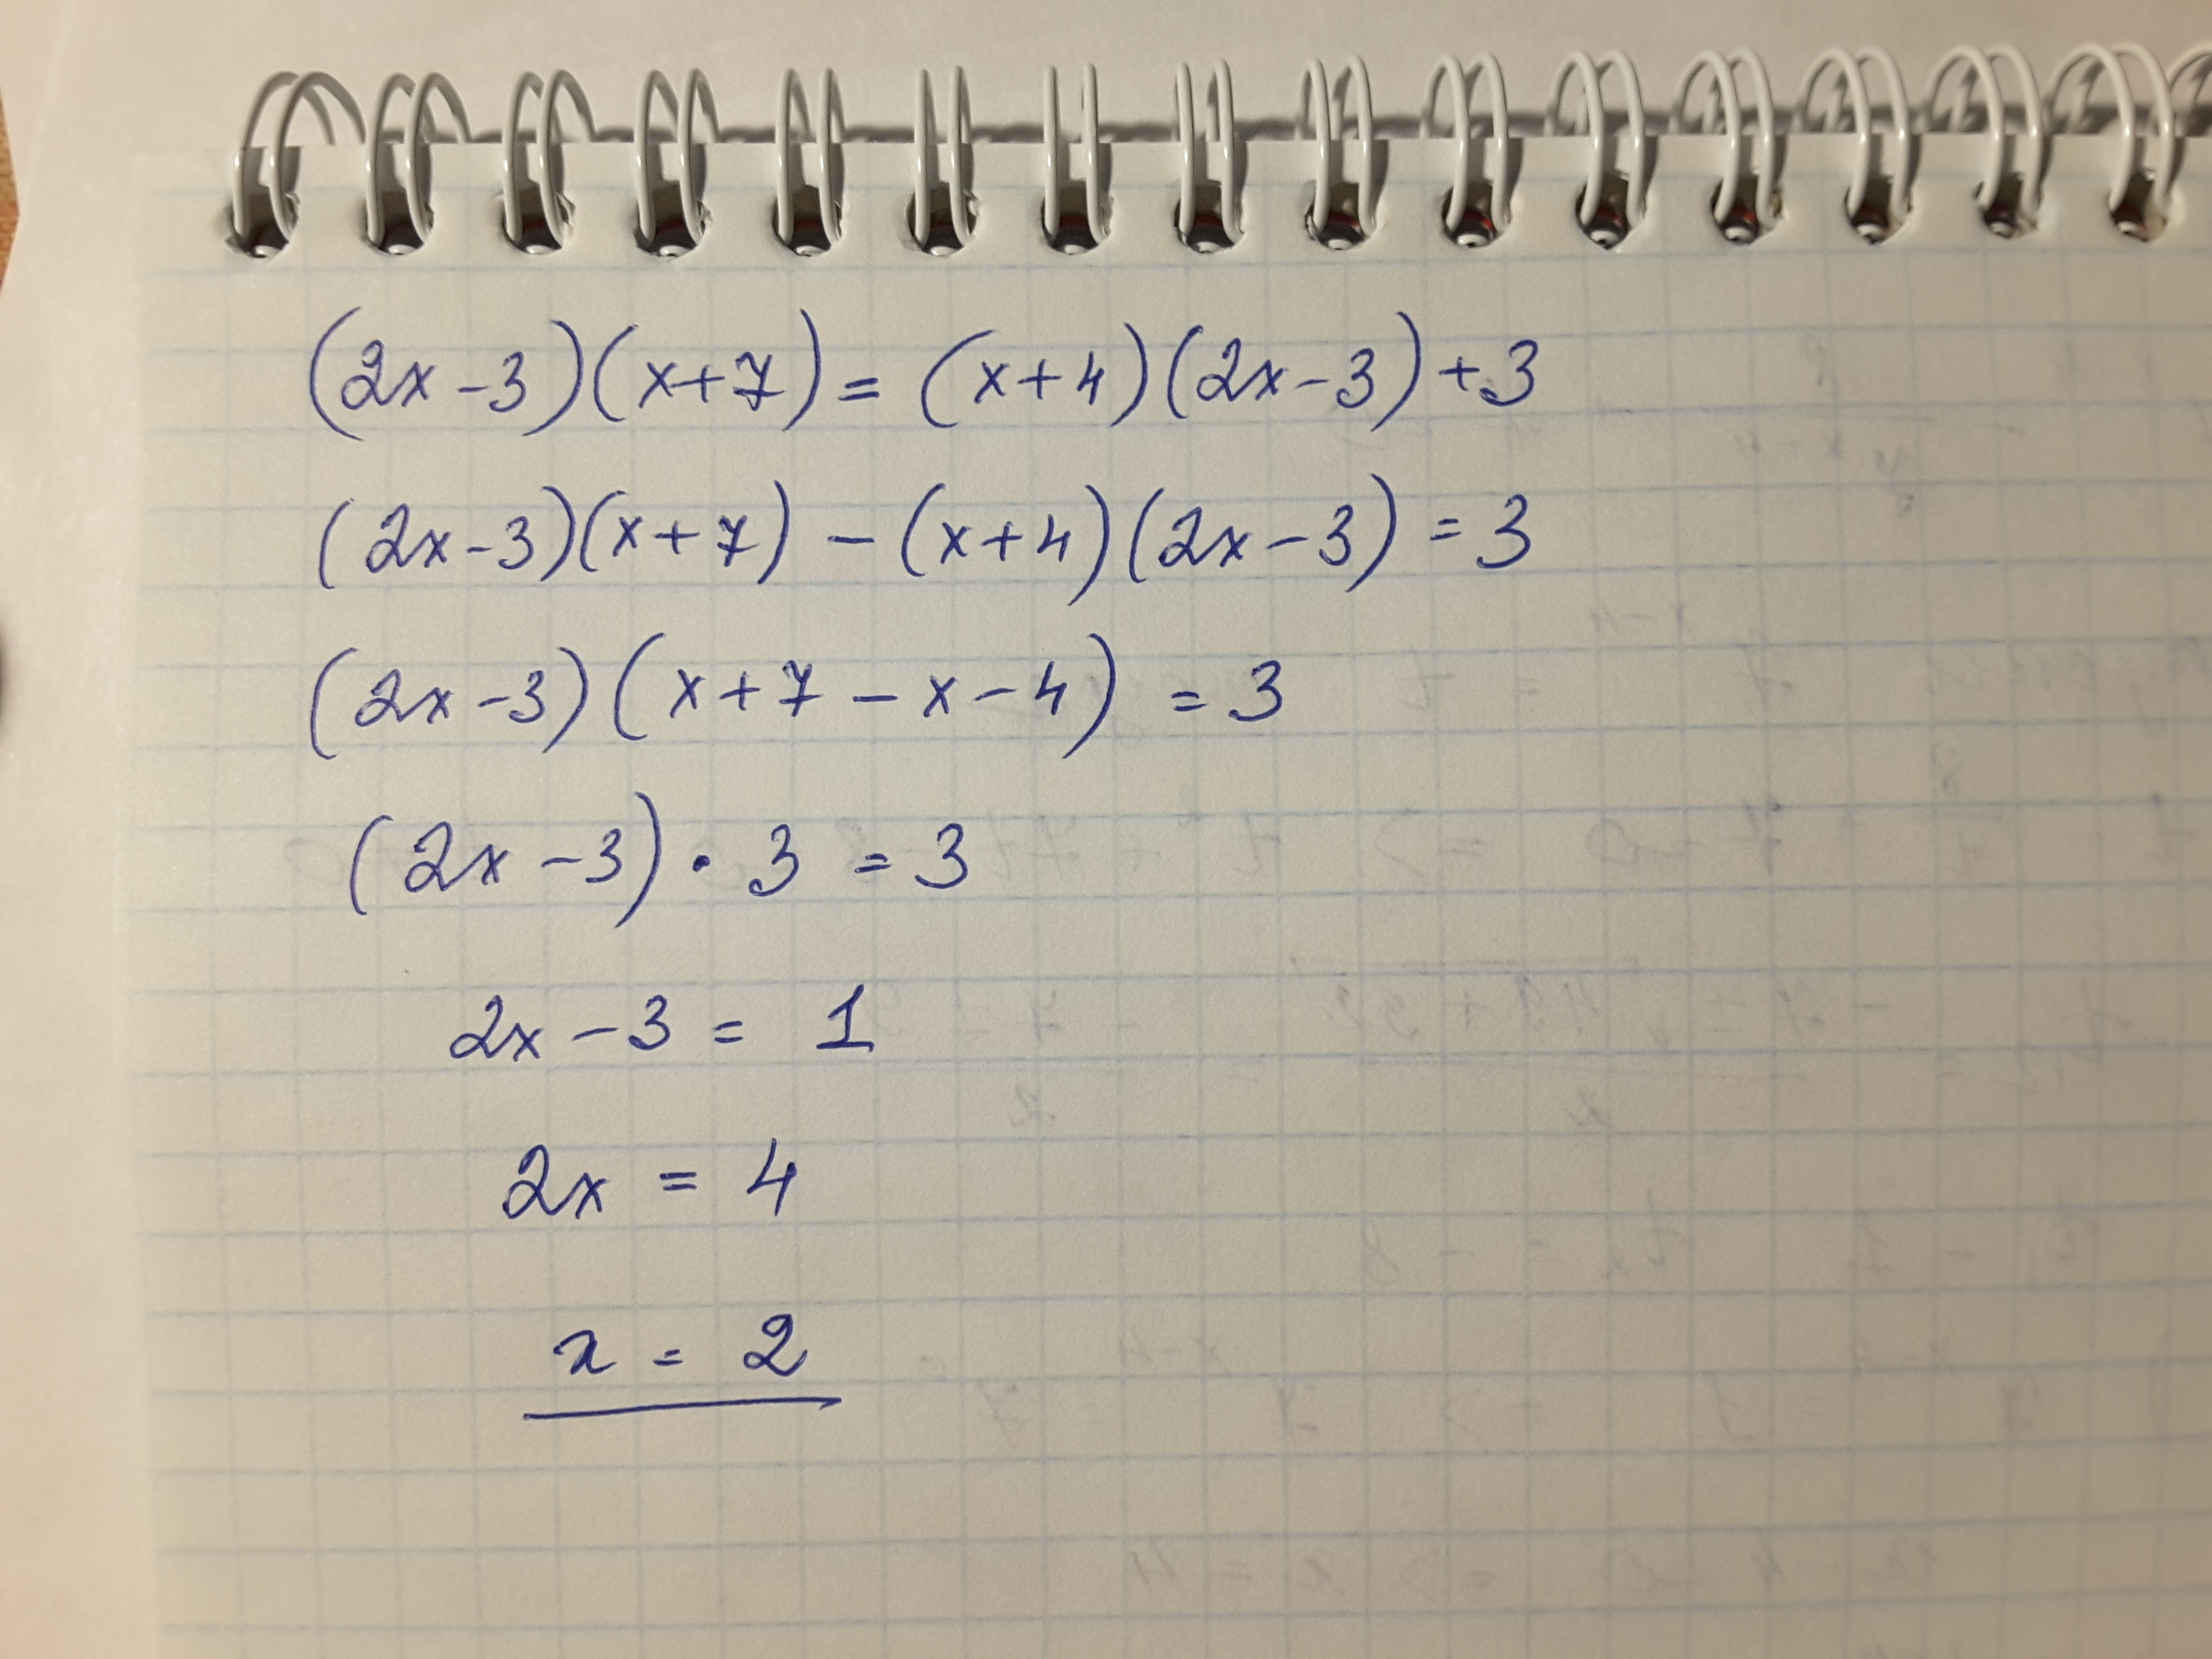 (2x-3)(x+7)=(x+4)(2x-3)+3
(2x-3)(x+7)-(x+4)(2x-3)=3
(2x-3)(x+7-x-4)=3
(2x-3)·3=3
2x-3=1
2x=4
x=2